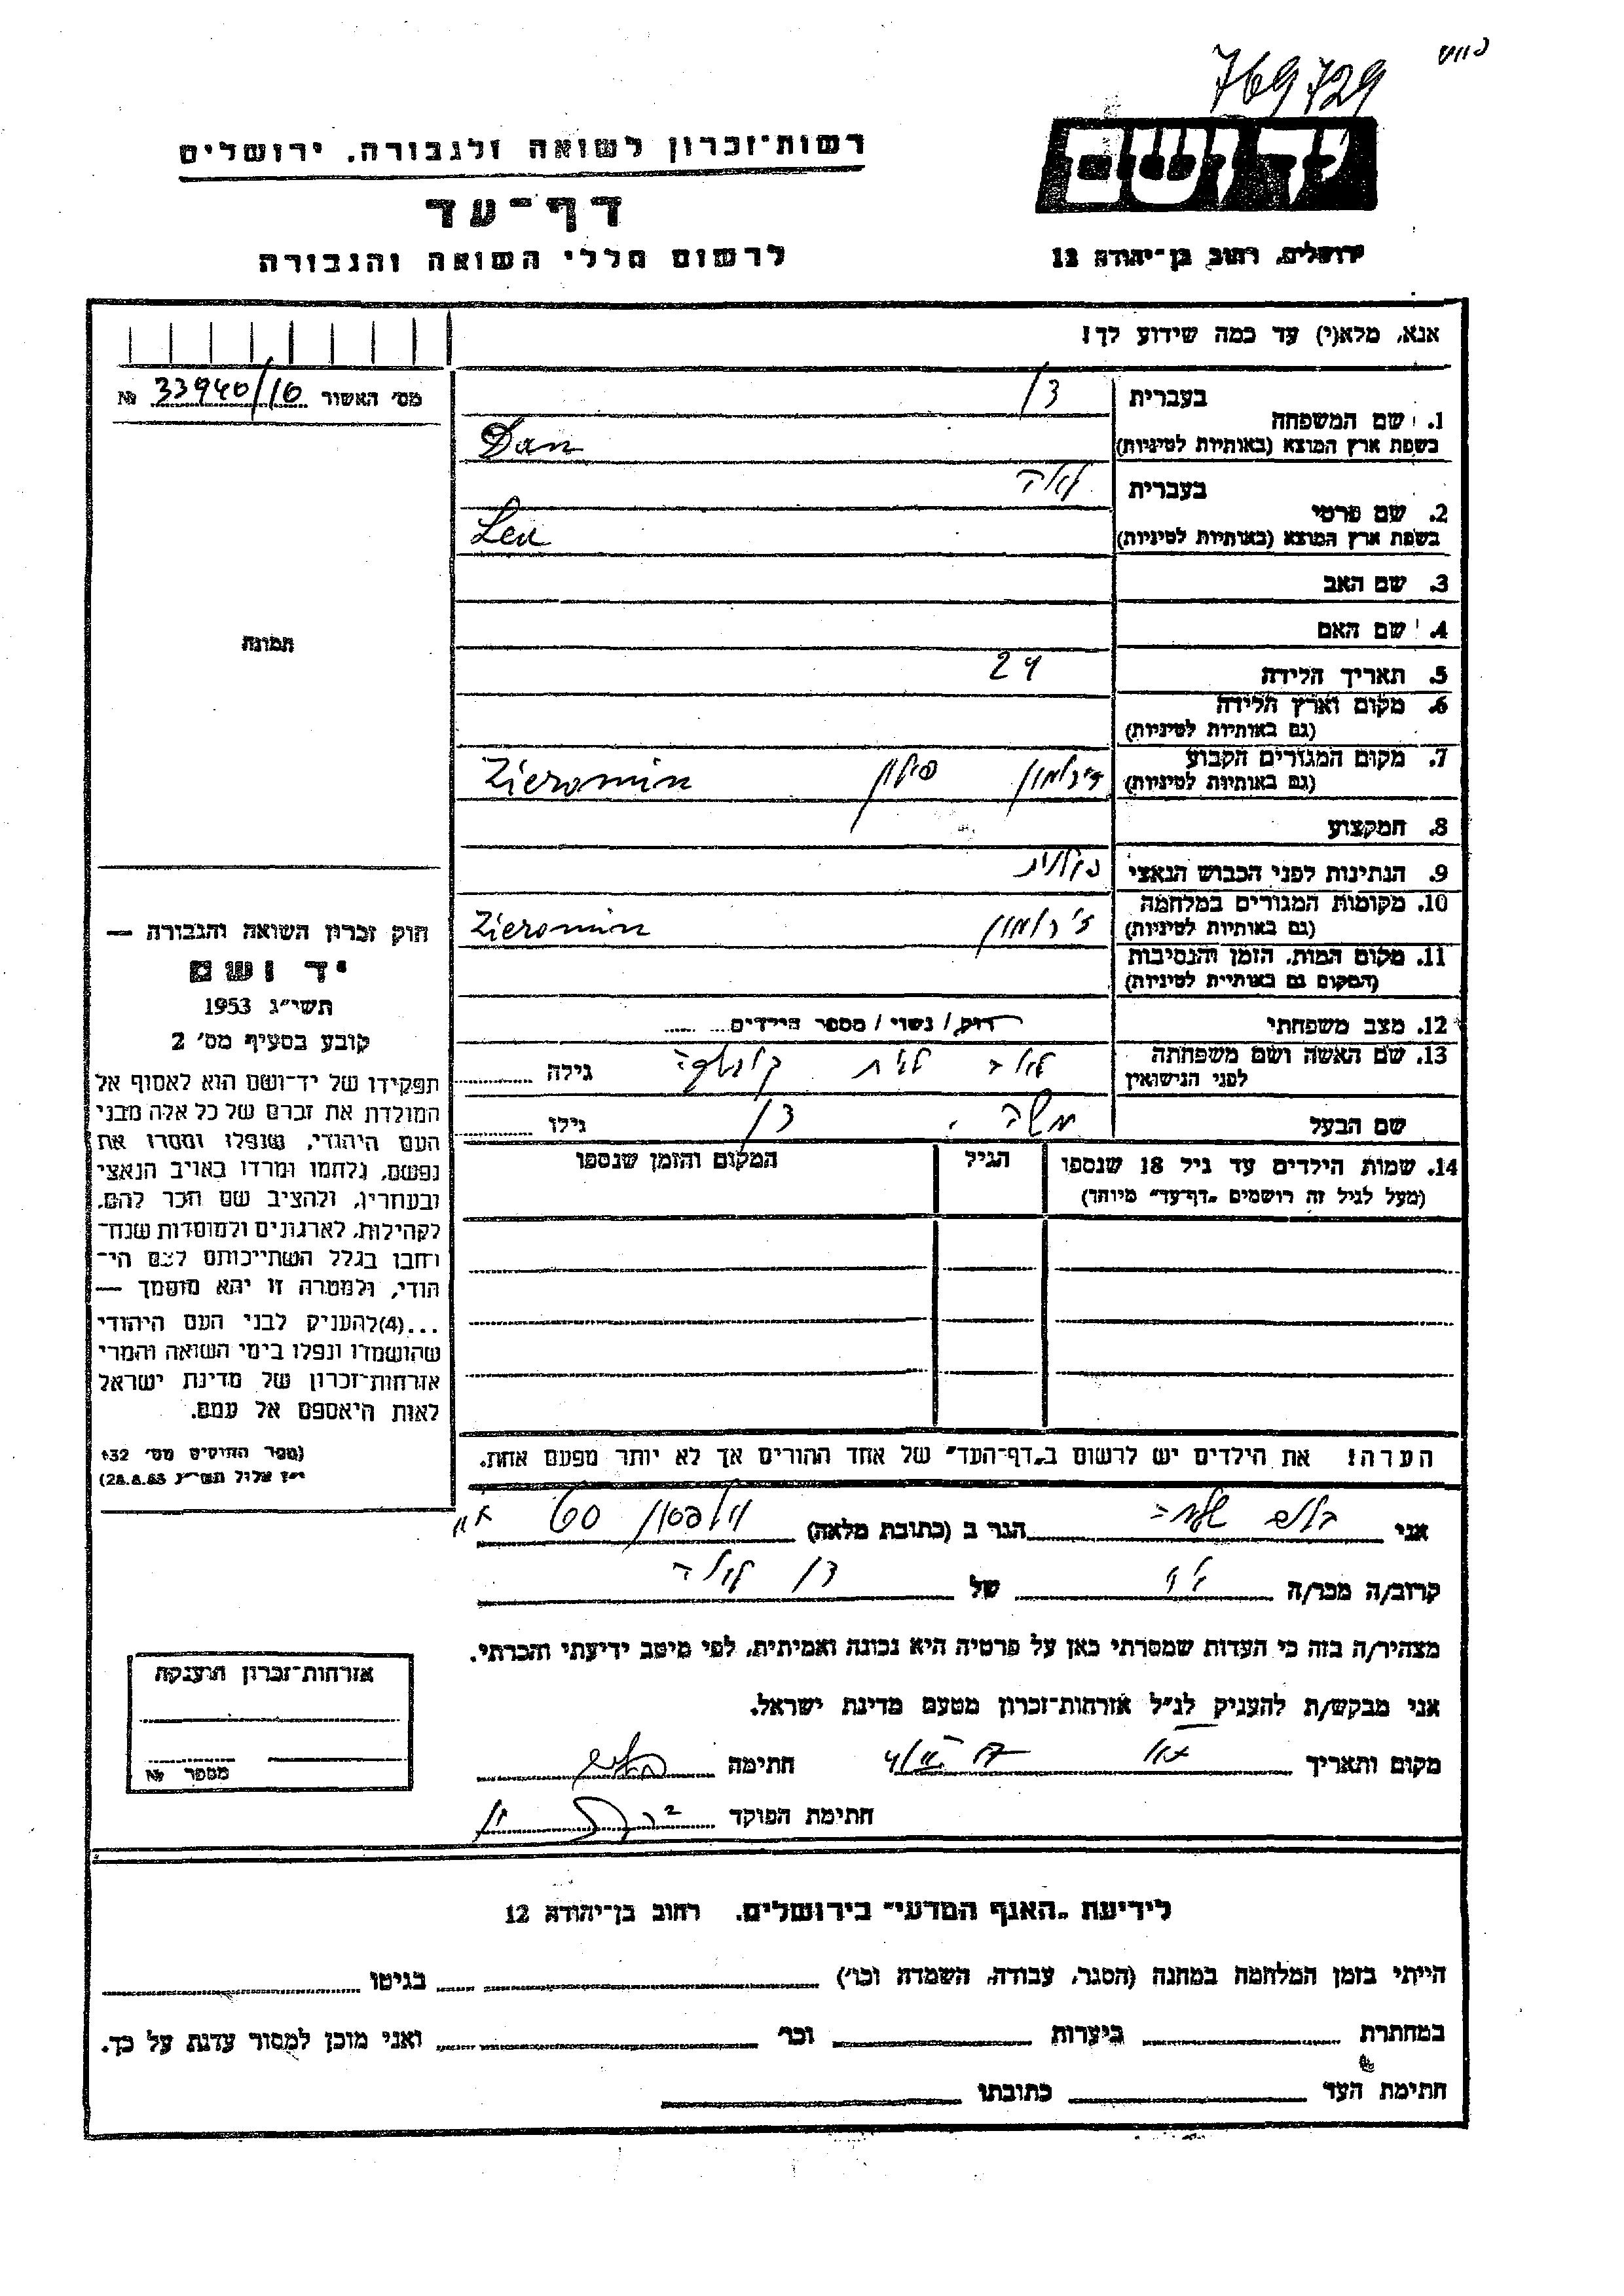 769729
יד ושם
רשות־זכרון לשואה ולגבורה, ירושלים
דף־עד
לרשום חללי השואה והגבורה
ירושלים, רחוב בן־יהודה 12
אנא, מלא(י) עד כמה שידוע לך!
מס׳ האשור 33940/10 №
תמונה
בעברית דן
1. שם המשפחה
בשפת ארץ המוצא (באותיות לטיניות) Dan
בעברית לאה
2. שם פרטי
בשפת ארץ המוצא (באותיות לטיניות) Lea
3. שם האב
4. שם האם
5. תאריך הלידה 24
6. מקום וארץ הלידה
(גם באותיות לטיניות)
7. מקום המגורים הקבוע
(גם באותיות לטיניות) פולין Zieromin
8. המקצוע
9. הנתינות לפני הכבוש הנאצי פולנית
10. מקומות המגורים במלחמה
(גם באותיות לטיניות) Zieromin
11. מקום המות, הזמן והנסיבות
(המקום גם באותיות לטיניות)
12. מצב משפחתי רוק/ נשוי/ מספר הילדים
13. שם האשה ושם משפחתה
לפני הנישואין לאה לבית גילה
שם הבעל משה דן גילו
14. שמות הילדים עד גיל 18 שנספו
(מעל לגיל זה רושמים „דף־עד” מיוחד)
הגיל
המקום והזמן שנספו
הערה! את הילדים יש לרשום ב„דף־העד” של אחד ההורים אך לא יותר מפעם אחת.
חוק זכרון השואה והגבורה —
יד ושם
תשי״ג 1953
קובע בסעיף מס׳ 2
תפקידו של יד־ושם הוא לאסוף אל
המולדת את זכרם של כל אלה מבני
העם היהודי, שנפלו ומסרו את
נפשם, נלחמו ומרדו באויב הנאצי
ובעוזריו, ולהציב שם וזכר להם,
לקהילות, לארגונים ולמוסדות שנח־
רבו בגלל השתייכותם לעם הי־
הודי, ולמטרה זו יהא מוסמך —
...(4)להעניק לבני העם היהודי
שהושמדו ונפלו בימי השואה והמרי
אזרחות־זכרון של מדינת ישראל
לאות היאספם אל עמם.
(ספר החוקים מס׳ 132
י״ז אלול תשי״ג 28.8.53)
אני בלום הגר ב (כתובת מלאה) וולפסון 60
קרוב/ה מכר/ה של דן לאה
מצהיר/ה בזה כי העדות שמסרתי כאן על פרטיה היא נכונה ואמיתית, לפי מיטב ידיעתי והכרתי.
אני מבקש/ת להעניק לנ״ל אזרחות־זכרון מטעם מדינת ישראל.
מקום ותאריך חתימה
חתימת הפוקד
אזרחות־זכרון הוענקה
מספר №
לידיעת „האגף המדעי” בירושלים, רחוב בן־יהודה 12
הייתי בזמן המלחמה במחנה (הסגר, עבודה, השמדה וכו׳) בגיטו
במחתרת ביערות וכו׳ ואני מוכן למסור עדות על כך.
חתימת העד כתובתו